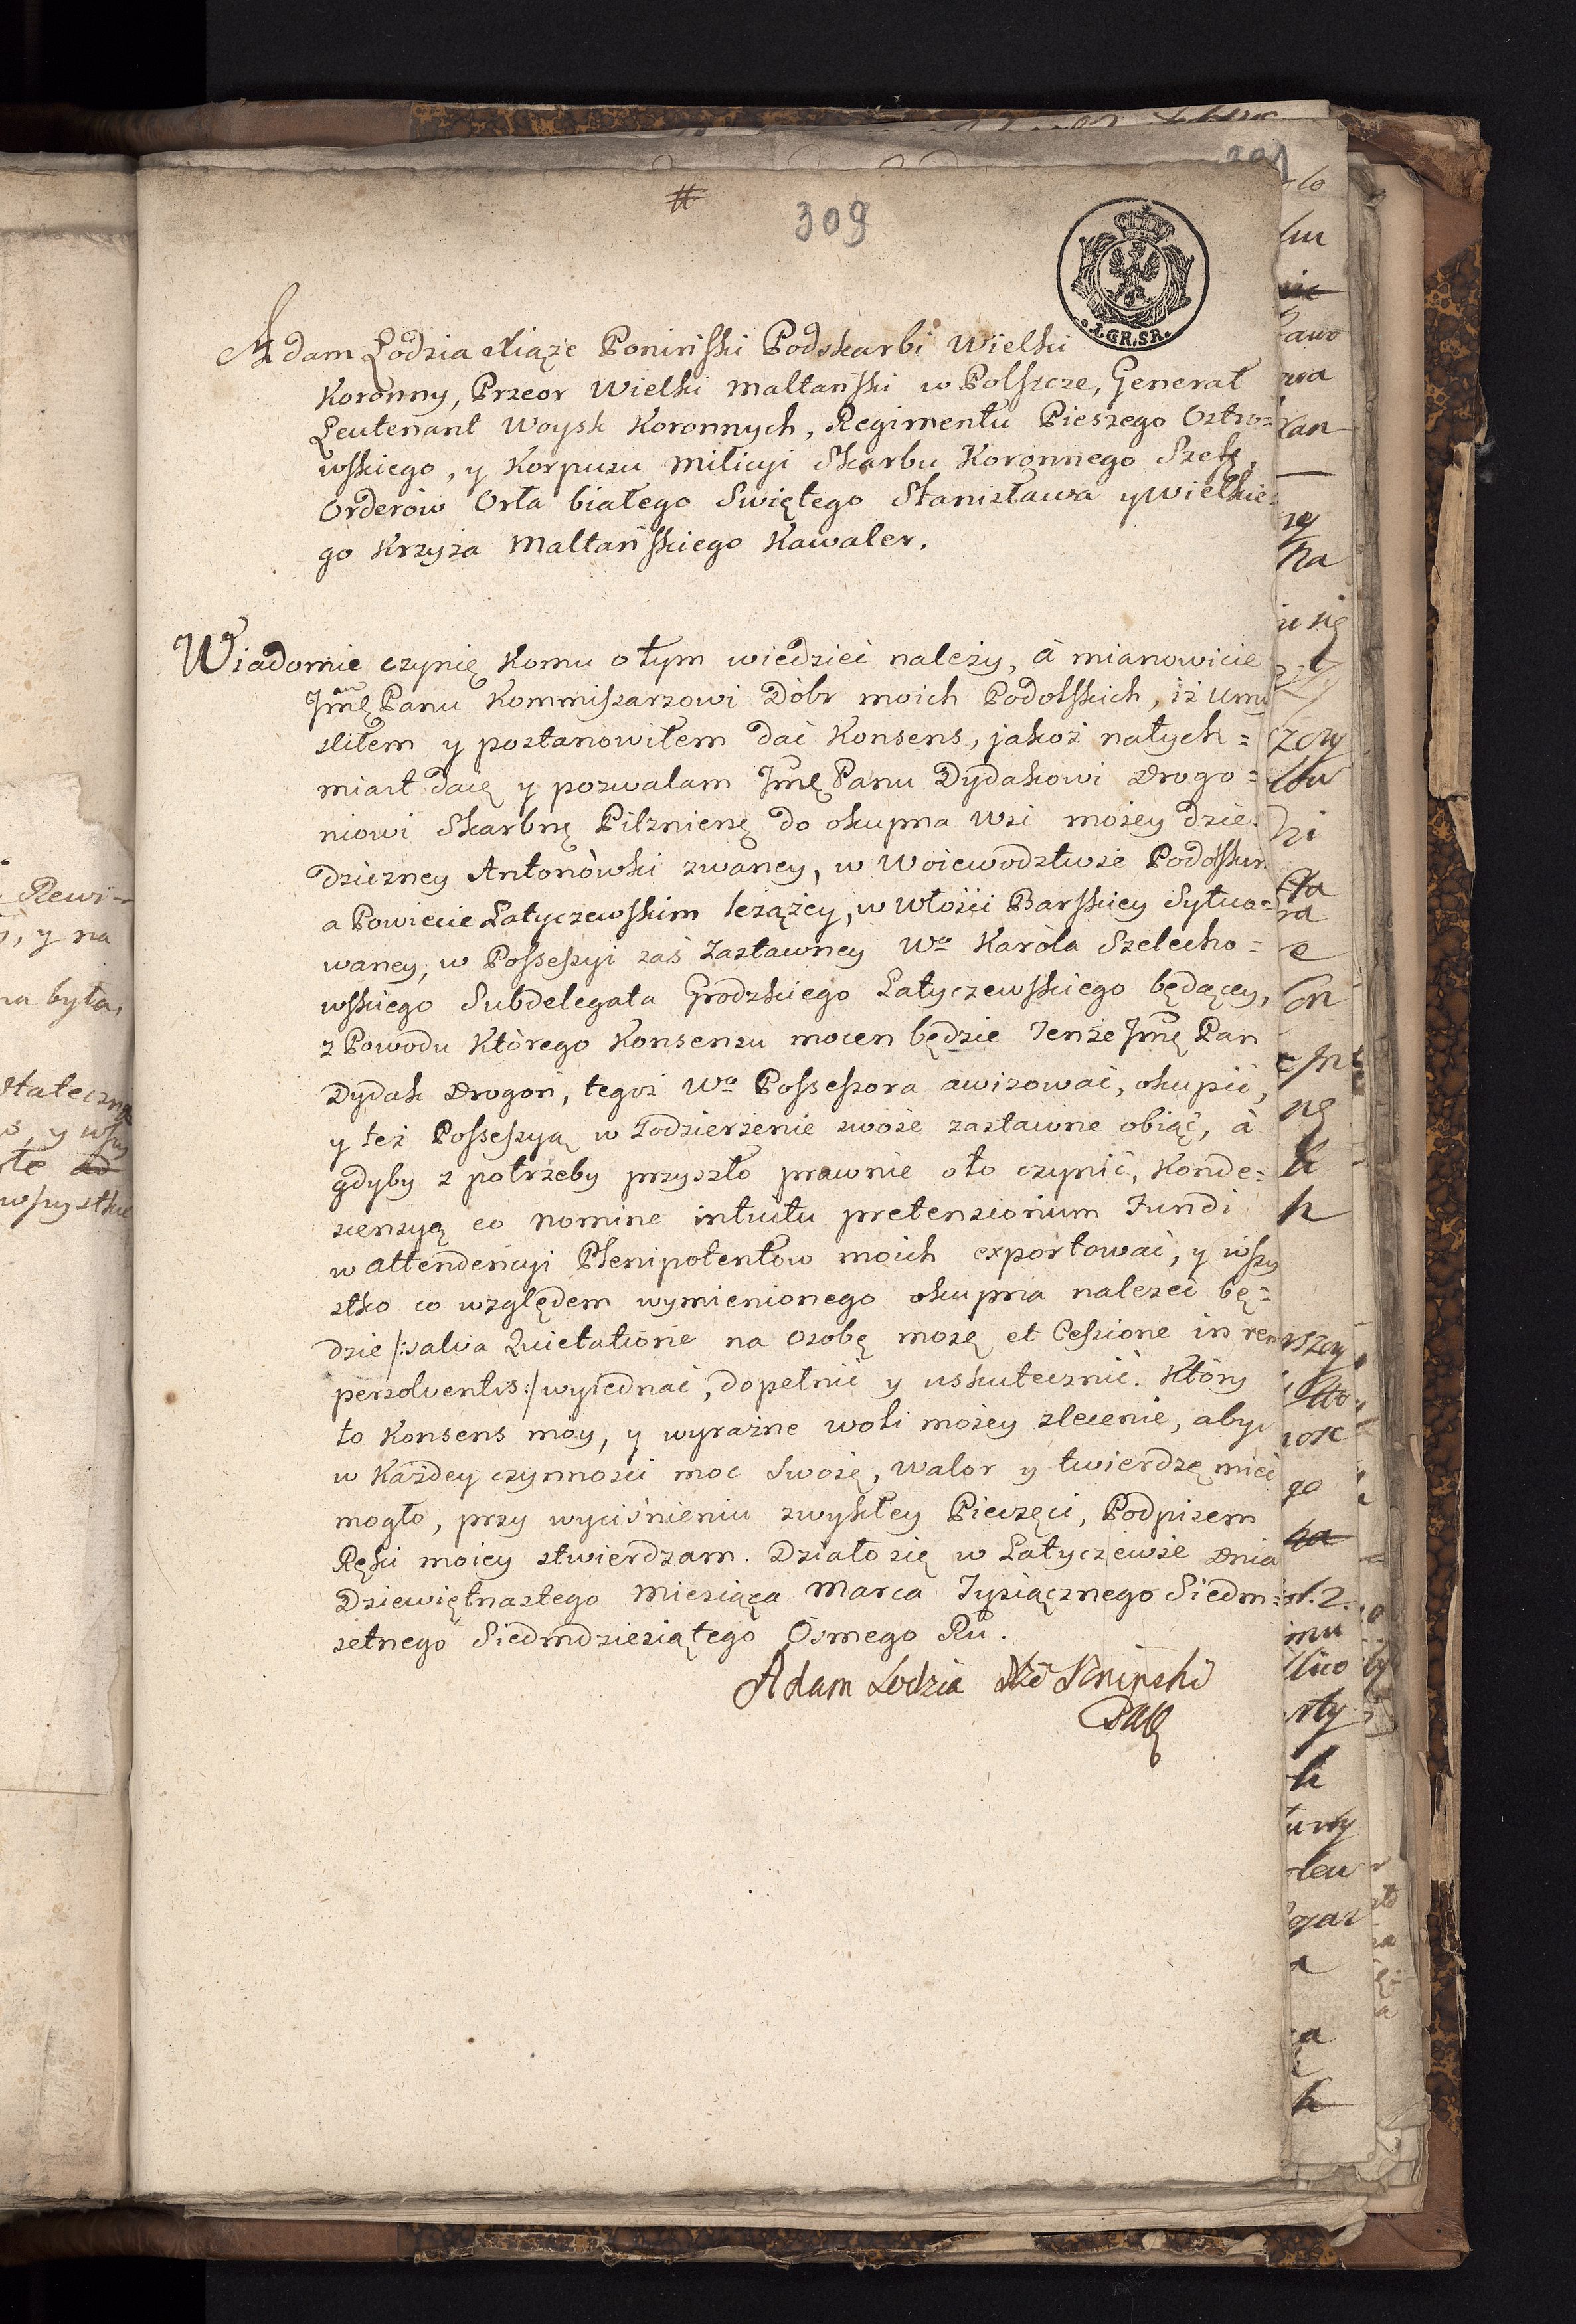 309
1.GR.SR.
Adam Łodzia Xiąże Poniński Podskarbi Wielki
Koronny, Przeor Wielki Maltański w Polszcze, Generał
Leutenant Woysk Koronnych, Regimentu Pieszego Ostro=
wskiego, y Korpusu Milicyi Skarbu Koronnego Szeff,
Orderów Orła białego Swiętego Stanisława y Wielkie=
go Krzyża Maltańskiego Kawaler.
Wiadomie czynię Komu o tym wiedzieć należy, à mianowicie
Jmę Panu Kommissarzowi Dóbr moich Podolskich, iż umy
sliłem y postanowiłem dać Konsens, jakoż natych=
miast daię y pozwalam Jmę Panu Dydakowi Drogo=
niowi Skarbnę Pilznienę do okupna wsi moiey dzie
dziczney Antonòwki zwaney, w Woiewodztwie Podolskim
a Powiecie Latyczewskim leżącey, w włości Barskiey Sytuo=
waney, w Possessyi zaś zastawney Wo Karòla Szelecho=
wskiego Subdelegata Grodzkiego Latyczewskiego będącey,
z Powodu Ktòrego Konsensu mocen będzie Tenże Jmę Pan
Dydak Drogoń, tegoż Wo Possessora awizować, okupić,
y też Possessyą w Todzierżenie swoie zastawne obiąć, à
gdyby z potrzeby przyszło prawnie oto czynić, Konde=
scensyą eo nomine intuitu pretensionum Fundi
w attendencyi Plenipotentow moich exportować, y wszy
stko co względem wymienionego okupna nalezeć bę=
dzie /:salva Quietatione na Osobę moię et Cessione in rem
persolventis:/ wyiednać, dopełnić y uskutecznić. Ktòry
to Konsens moy, y wyraźne woli moiey zlecenie, aby
w Każdey czynności moc Swoię, walor y twierdzę mieć
mogło, przy wyciśnieniu zwykłey Pieczęci, Podpisem
Ręki moiey stwierdzam. Działo się w Latyczewie Dnia
Dziewiętnastego Miesiąca Marca Tysiącznego Siedm=
setnego Siedmdziesiątego Òsmego Ru.
Adam Lodzia Xże Poninski